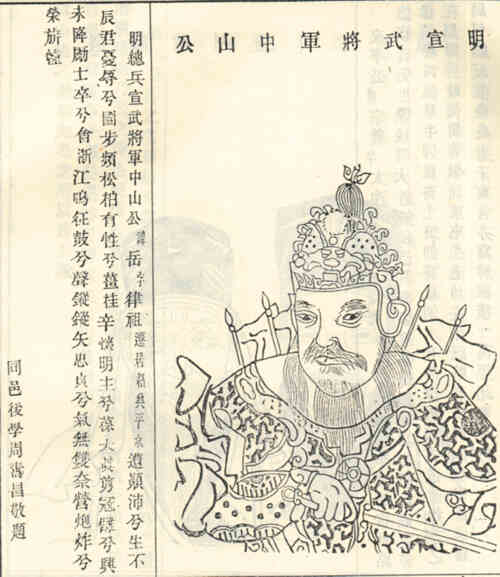 明宣武將軍中山公
明總兵宣武將軍中山公諱岳字律祖遷居紹興平水遭顛沛兮生不
辰君憂辱兮國步頻松柏有性兮薑桂辛懷明主兮葆大義剪冠髮兮興
未降勵士卒兮會浙江鳴征鼓兮聲鏦鏦矢忠貞兮氣無雙奈營炮炸兮
榮旂幢
同邑後學周昌敬題